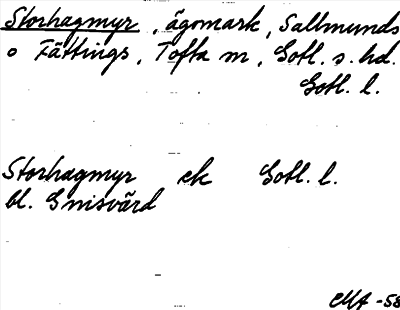 Storhagmyr, ägomark, Sallmunds
o Fättings, Tofta m, Gotl. s. hd.
Gotl. l.
Storhagmyr ek Gotl. l.
bl. Gnisvärd
CMA -58